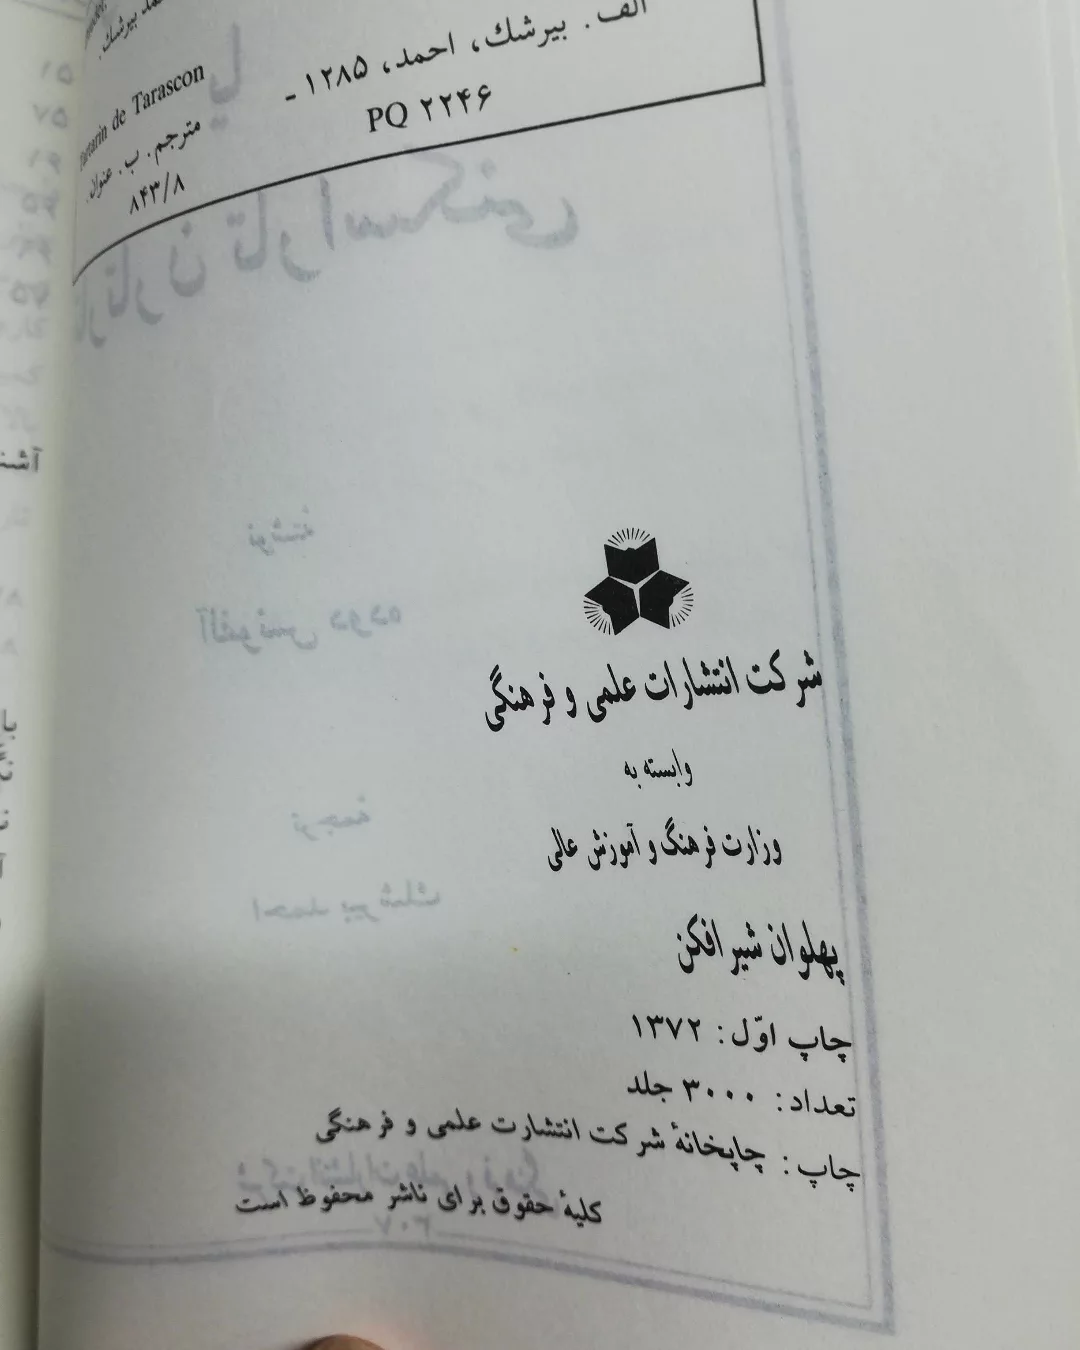 الف. بیرشک، احمد، ۱۲۸۵ ـ
Tartarin de Tarascon
مترجم. ب. عنوان.
PQ ۲۲۴۶
۸۴۳/۸
شرکت انتشارات علمی و فرهنگی
وابسته به
وزارت فرهنگ و آموزش عالی
پهلوان شیرافکن
چاپ اوّل: ۱۳۷۲
تعداد: ۳۰۰۰ جلد
چاپ: چاپخانهٔ شرکت انتشارت علمی و فرهنگی
کلیهٔ حقوق برای ناشر محفوظ است